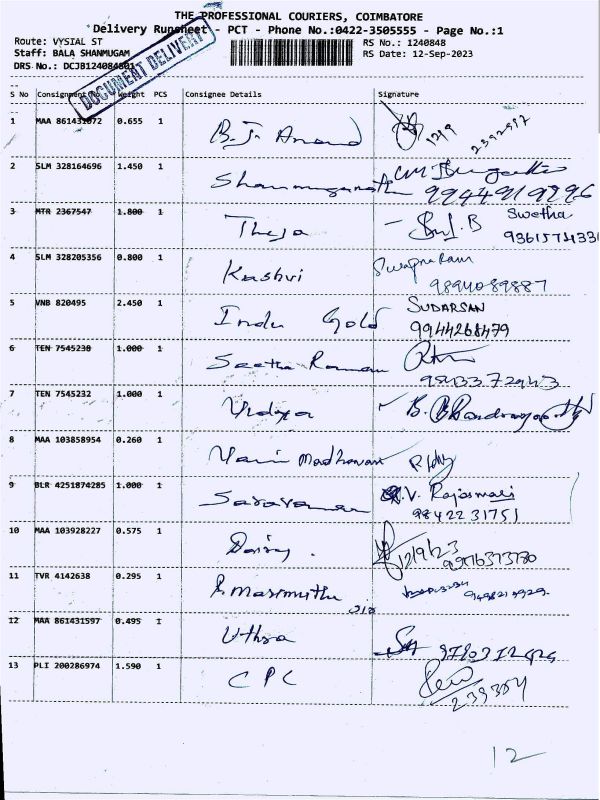 THE PROFESSIONAL COURIERS, COIMBATORE
Delivery Runsheet - PCT - Phone No.:0422-3505555 - Page No.:1
Route: VYSIAL ST RS No.: 1240848
Staff: BALA SHANMUGAM RS Date: 12-Sep-2023
DRS No.:
DOCUMENT DELIVERY
S No Consignment No Weight PCS Consignee Details Signature
1 MAA 0.655 1 B. J. Anand
2 SLM 328164696 1.450 1 Shanmuganath
9944919296
3 MTR 2367547 1.800 1 Theja B Swetha
4 SLM 328205356 0.800 1 Kashvi Swapna Ram
9894089887
5 VNB 820495 2.450 1 Indu Gold SUDARSAN
9944268479
6 TEN 7545230 1.000 1 Seetha Raman
7 TEN 7545232 1.000 1 Vidya B.
8 MAA 103858954 0.260 1 Madhavan
9 BLR 4251874285 1.000 1 Saravanan V. Rajeswari
9842231751
10 MAA 103928227 0.575 1 Daisy. 12/9/23
11 TVR 4142638 0.295 1 Marimuthu
12 MAA 861431597 0.495 1 Uthra
13 PLI 200286974 1.590 1 CPC
239384
12